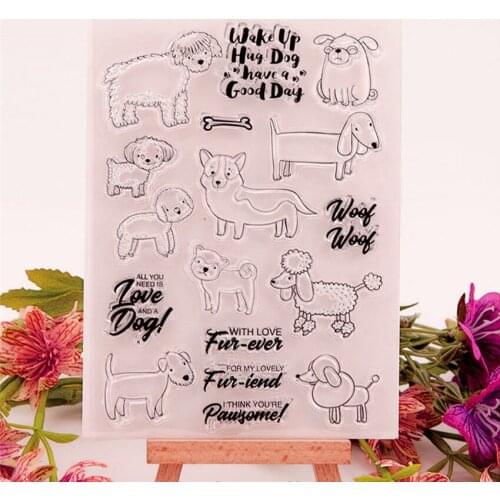 Wake Up
Hug Dog
have a
Good Day
Woof
Woof
ALL YOU
NEED IS
Love
AND A
Dog!
WITH LOVE
Fur-ever
FOR MY LOVELY
Fur-iend
I THINK YOU'RE
Pawsome!